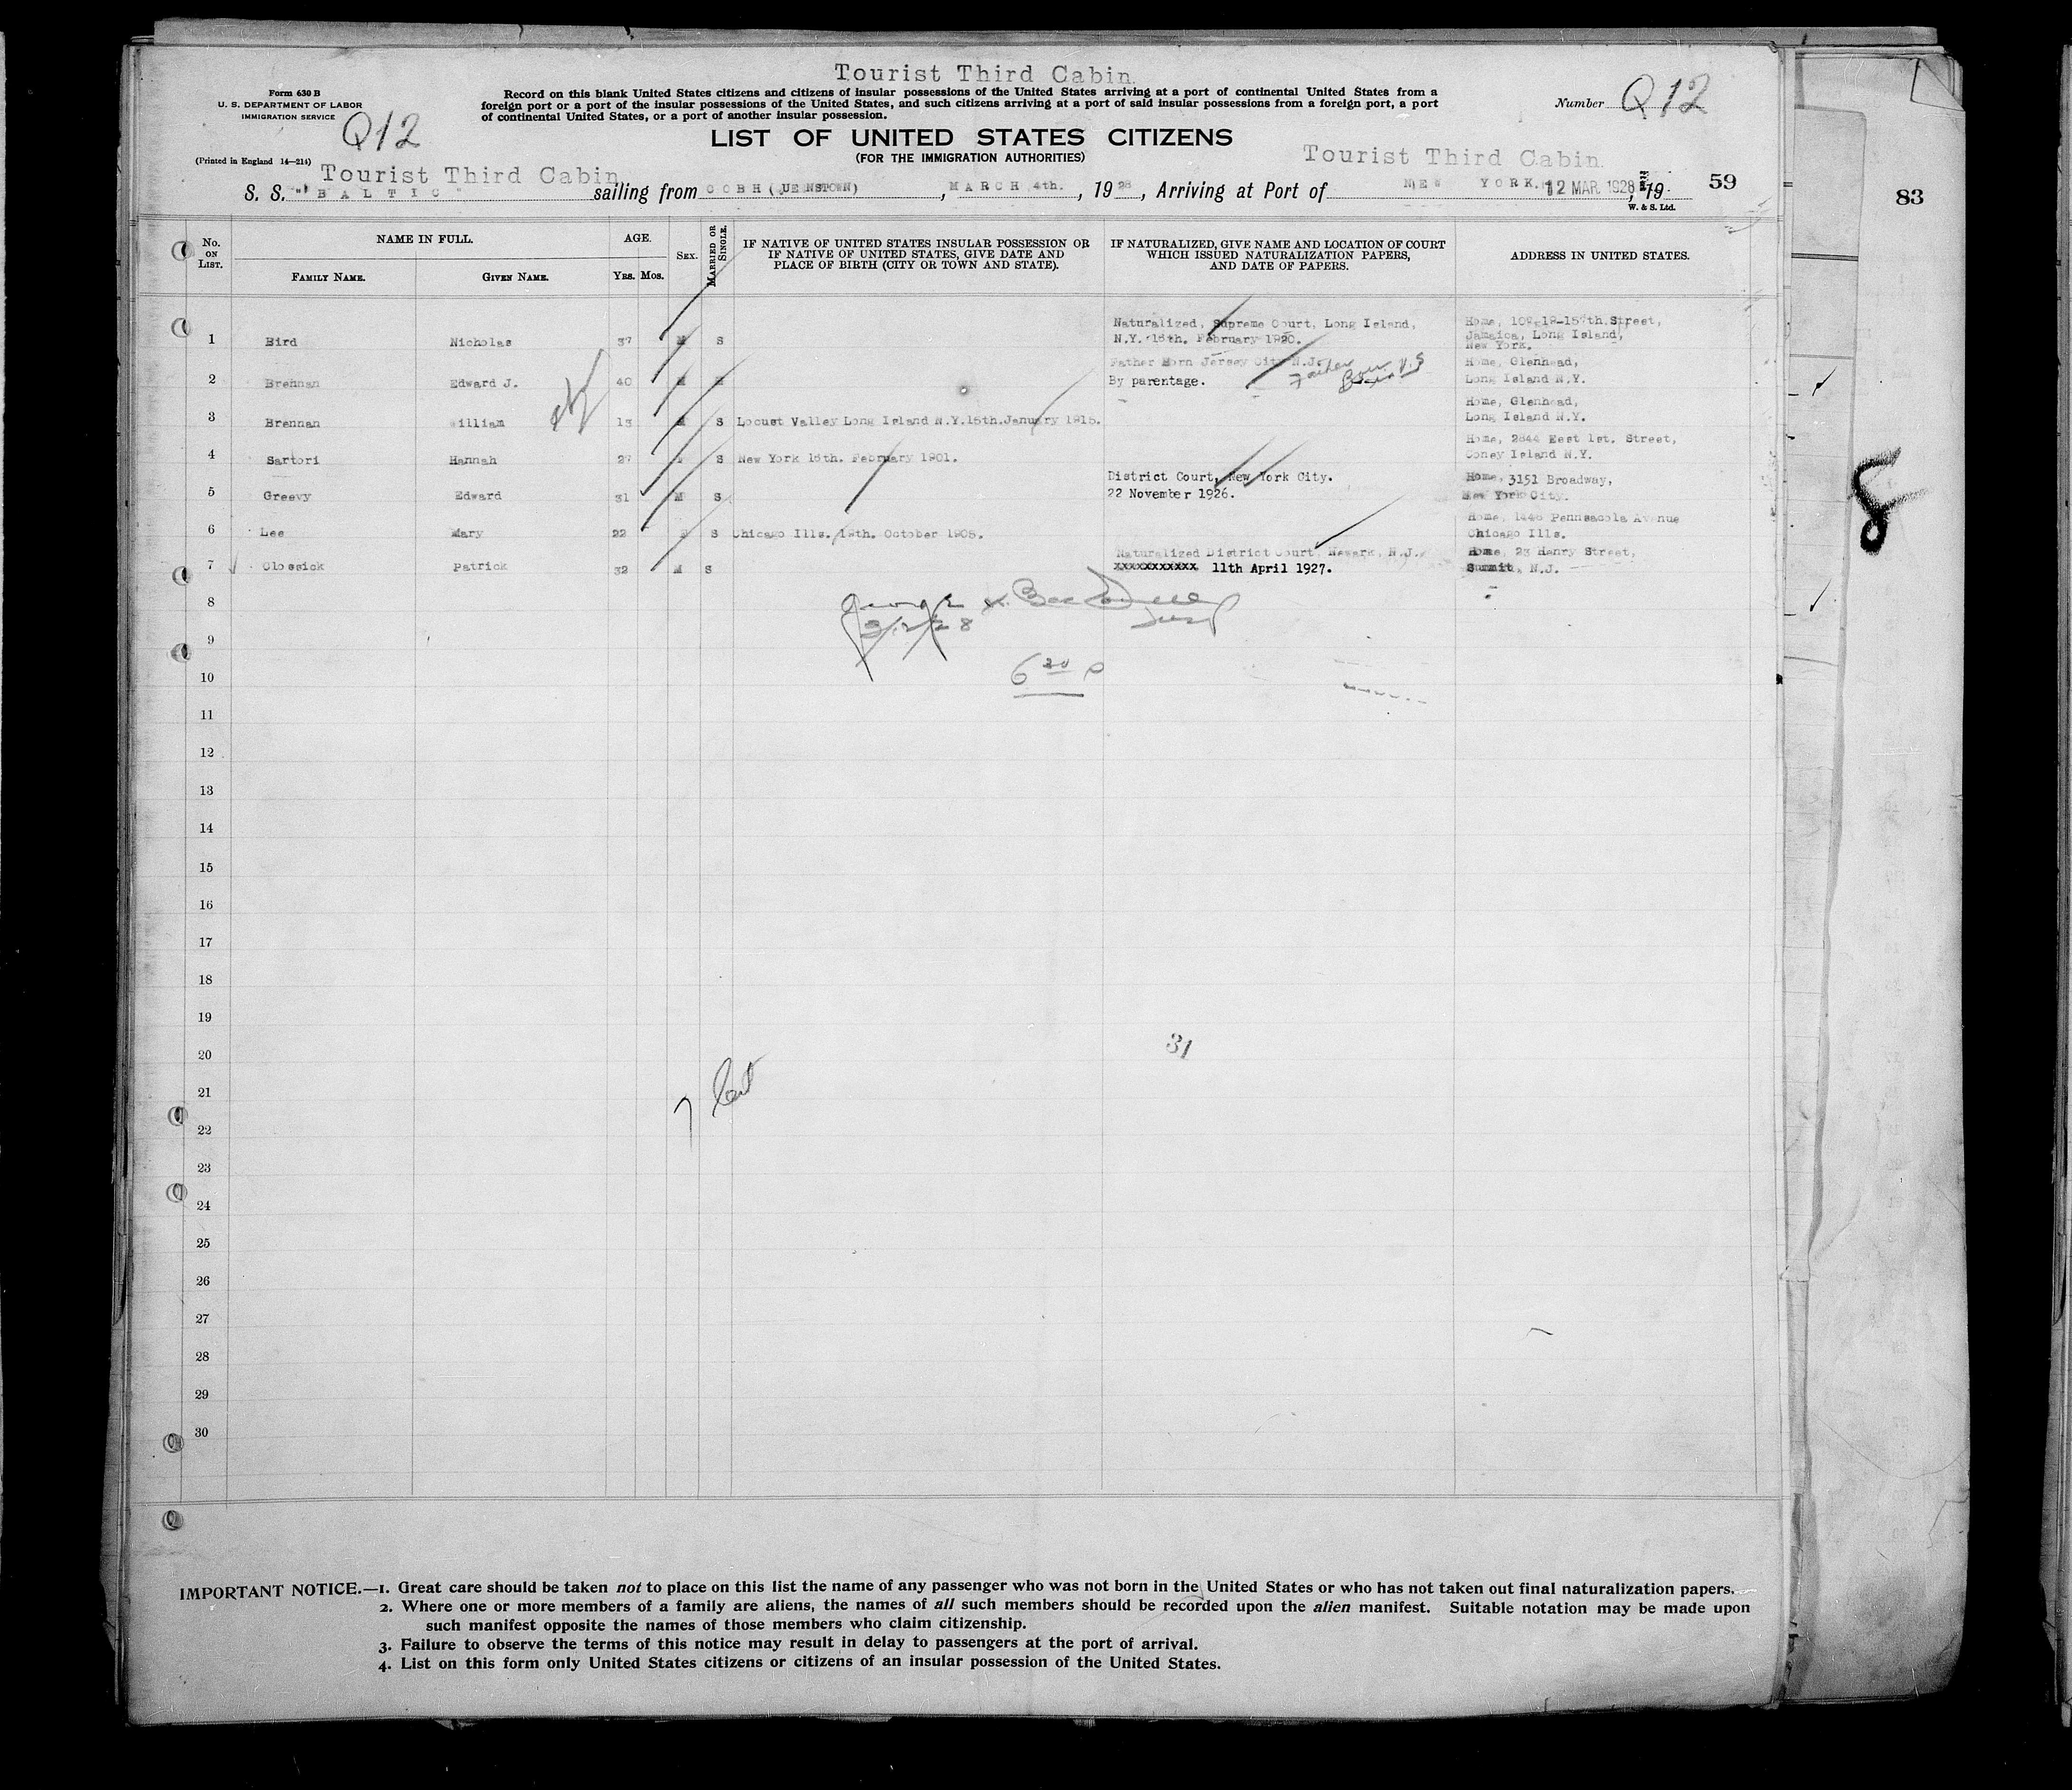 Tourist Third Cabin.
Form 630 B
U. S. DEPARTMENT OF LABOR
IMMIGRATION SERVICE
Q12
Record on this blank United States citizens and citizens of insular possessions of the United States arriving at a port of continental United States from a
foreign port or a port of the insular possessions of the United States, and such citizens arriving at a port of said insular possessions from a foreign port, a port
of continental United States, or a port of another insular possession.
Number Q12
LIST OF UNITED STATES CITIZENS
(FOR THE IMMIGRATION AUTHORITIES)
(Printed in England 14—214)
Tourist Third Cabin
Tourist Third Cabin.
S. S. "BALTIC" sailing from COBH (QUEENSTOWN), MARCH 4th., 1928, Arriving at Port of NEW YORK. 12 MAR. 1928, 19
W. & S. Ltd.
59
83
No. ON LIST.
NAME IN FULL.
FAMILY NAME.
GIVEN NAME.
AGE.
YRS. MOS.
SEX.
MARRIED OR SINGLE.
IF NATIVE OF UNITED STATES INSULAR POSSESSION OR
IF NATIVE OF UNITED STATES, GIVE DATE AND
PLACE OF BIRTH (CITY OR TOWN AND STATE).
IF NATURALIZED, GIVE NAME AND LOCATION OF COURT
WHICH ISSUED NATURALIZATION PAPERS,
AND DATE OF PAPERS.
ADDRESS IN UNITED STATES.
1 Bird Nicholas 37 M S
Naturalized, Supreme Court, Long Island,
N.Y. February 1920.
Home, Street,
Jamaica, Long Island,
New York.
2 Brennan Edward J. 40 M M
Father Born Jersey City N.J.
By parentage.
Father Born U.S
Home, Glenhead,
Long Island N.Y.
3 Brennan William 13 M S Locust Valley Long Island N.Y. 15th. January 1915.
Home, Glenhead,
Long Island N.Y.
4 Sartori Hannah 27 S New York February 1901.
Home, 2844 East 1st. Street,
Coney Island N.Y.
5 Greevy Edward 31 M S
District Court, New York City.
22 November 1926.
Home, 3151 Broadway,
New York City.
6 Lee Mary 22 S Chicago Ills. October 1905.
Home, 1446 Pennsacola Avenue
Chicago Ills.
7 Clossick Patrick 32 M S
Naturalized District Court, Newark, N.J.
xxxxxxxxxxx 11th April 1927.
Home, 23 Henry Street,
Summit, N.J.
8
3/12/28
9
10
6 30 P
11
12
13
14
15
16
17
18
19
20
31
21
7
22
23
24
25
26
27
28
29
30
IMPORTANT NOTICE.—1. Great care should be taken not to place on this list the name of any passenger who was not born in the United States or who has not taken out final naturalization papers.
2. Where one or more members of a family are aliens, the names of all such members should be recorded upon the alien manifest. Suitable notation may be made upon
such manifest opposite the names of those members who claim citizenship.
3. Failure to observe the terms of this notice may result in delay to passengers at the port of arrival.
4. List on this form only United States citizens or citizens of an insular possession of the United States.